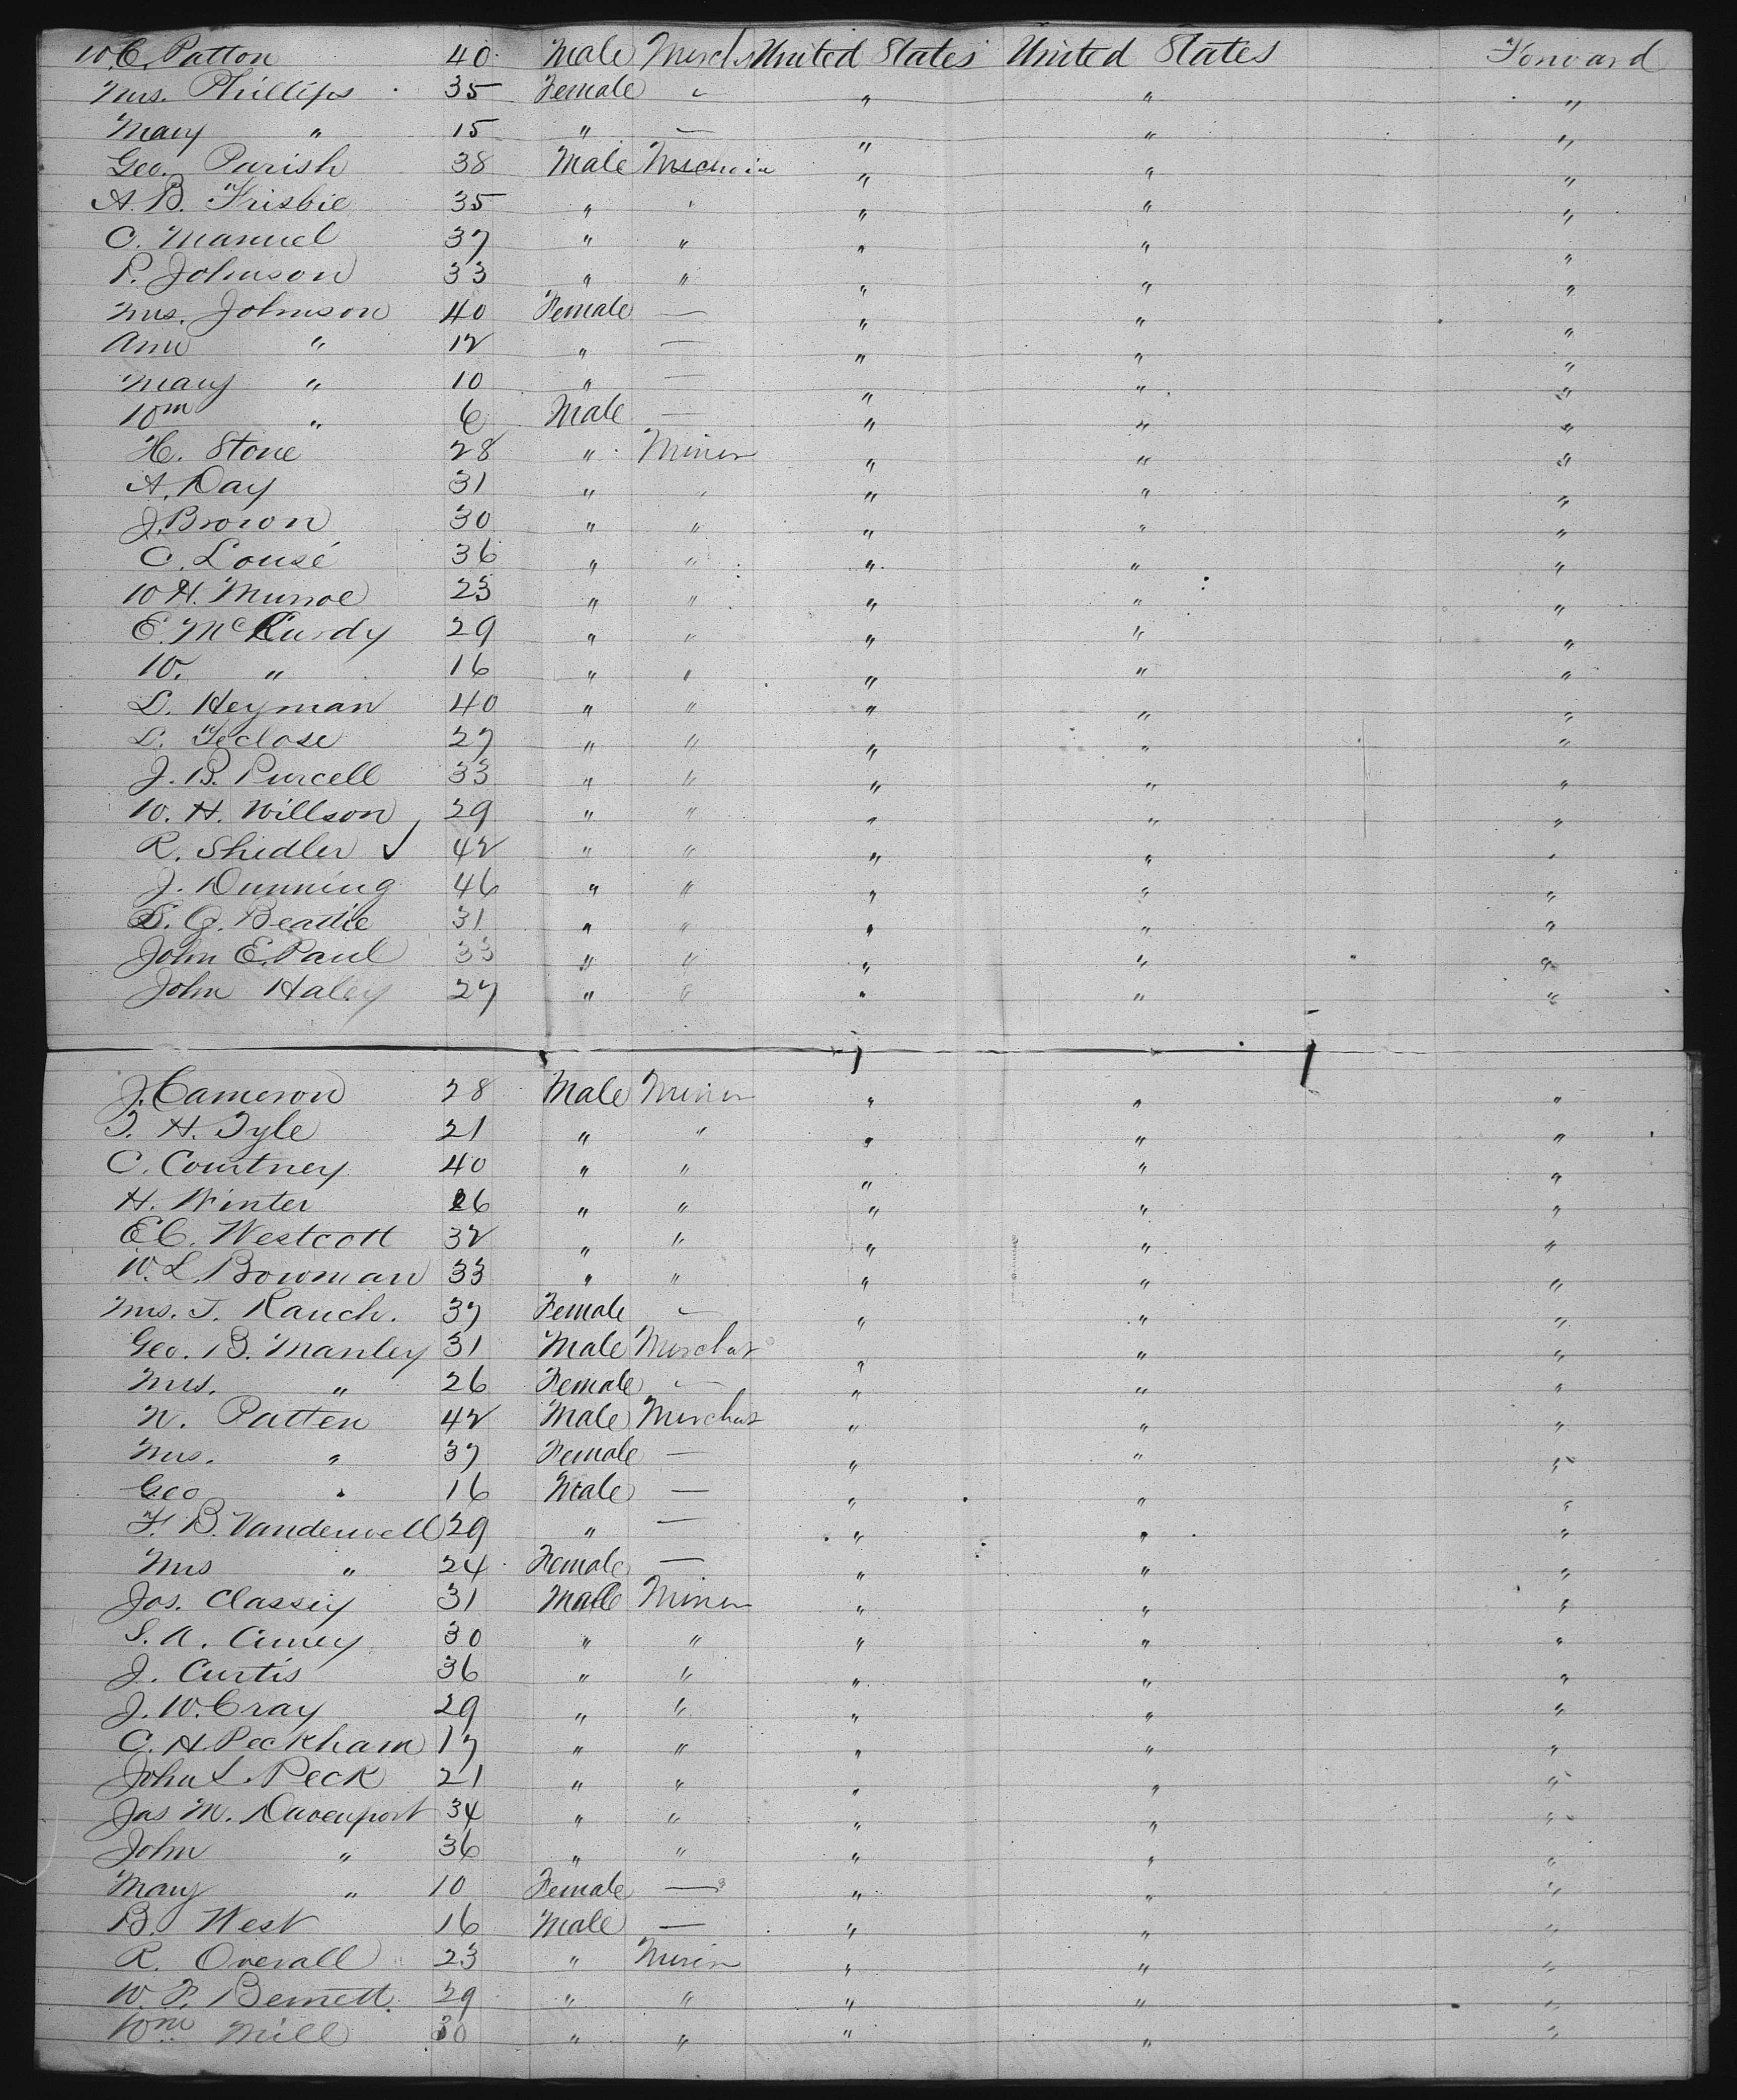 W. C. Patton 40 Male Mercht United States United States Forward
Mrs. Phillips 35 Female " " " "
Mary " 15 " — " " "
Geo. Parish 38 Male " " "
A. B. Frisbie 35 " " " " "
C. Manuel 37 " " " " "
P. Johnson 33 " " " " "
Mrs. Johnson 40 Female — " " "
Ann " 12 " — " " "
Mary " 10 " — " " "
Wm " 6 Male — " " "
H. Stone 28 " Miner " " "
A. Day 31 " " " " "
J. Brown 30 " " " " "
C. Lousé 36 " " " " "
W H. Munroe 23 " " " " "
E. McCurdy 29 " " " " "
W. " 16 " " " " "
L. Heyman 40 " " " " "
L. Teclose 27 " " " " "
J. B. Purcell 33 " " " " "
W. H. Willson 29 " " " " "
R. Shedler ✓ 42 " " " " "
J. Dunning 46 " " " " "
S. G. Beattie 31 " " " " "
John E. Paul 33 " " " " "
John Haley 27 " " " " "
J. Cameron 28 Male Miner " " "
T. H. Tyle 21 " " " " "
C. Courtney 40 " " " " "
H. Winter 26 " " " " "
E C. Westcott 32 " " " " "
W. L. Bowman 33 " " " " "
Mrs. J. Rauch. 37 Female — " " "
Geo. B. Manley 31 Male Merchat " " "
Mrs. " 26 Female — " " "
N. Patten 42 Male Merchat " " "
Mrs. " 37 Female — " " "
Geo " 16 Male — " " "
F. B. Vanderwell 29 " — " " "
Mrs " 24 Female — " " "
Jos. Classey 31 Male Miner " " "
S. A. 30 " " " " "
J. Curtis 36 " " " " "
J. W. Cray 29 " " " " "
C. H. Peckham 17 " " " " "
John L. Peck 21 " " " " "
Jas M. Davenport 34 " " " " "
John " 36 " " " " "
Mary " 10 Female — " " "
B. West 16 Male — " " "
R. Overall 23 " Miner " " "
W. F. Bennett. 29 " " " " "
Wm Mill 30 " " " " "